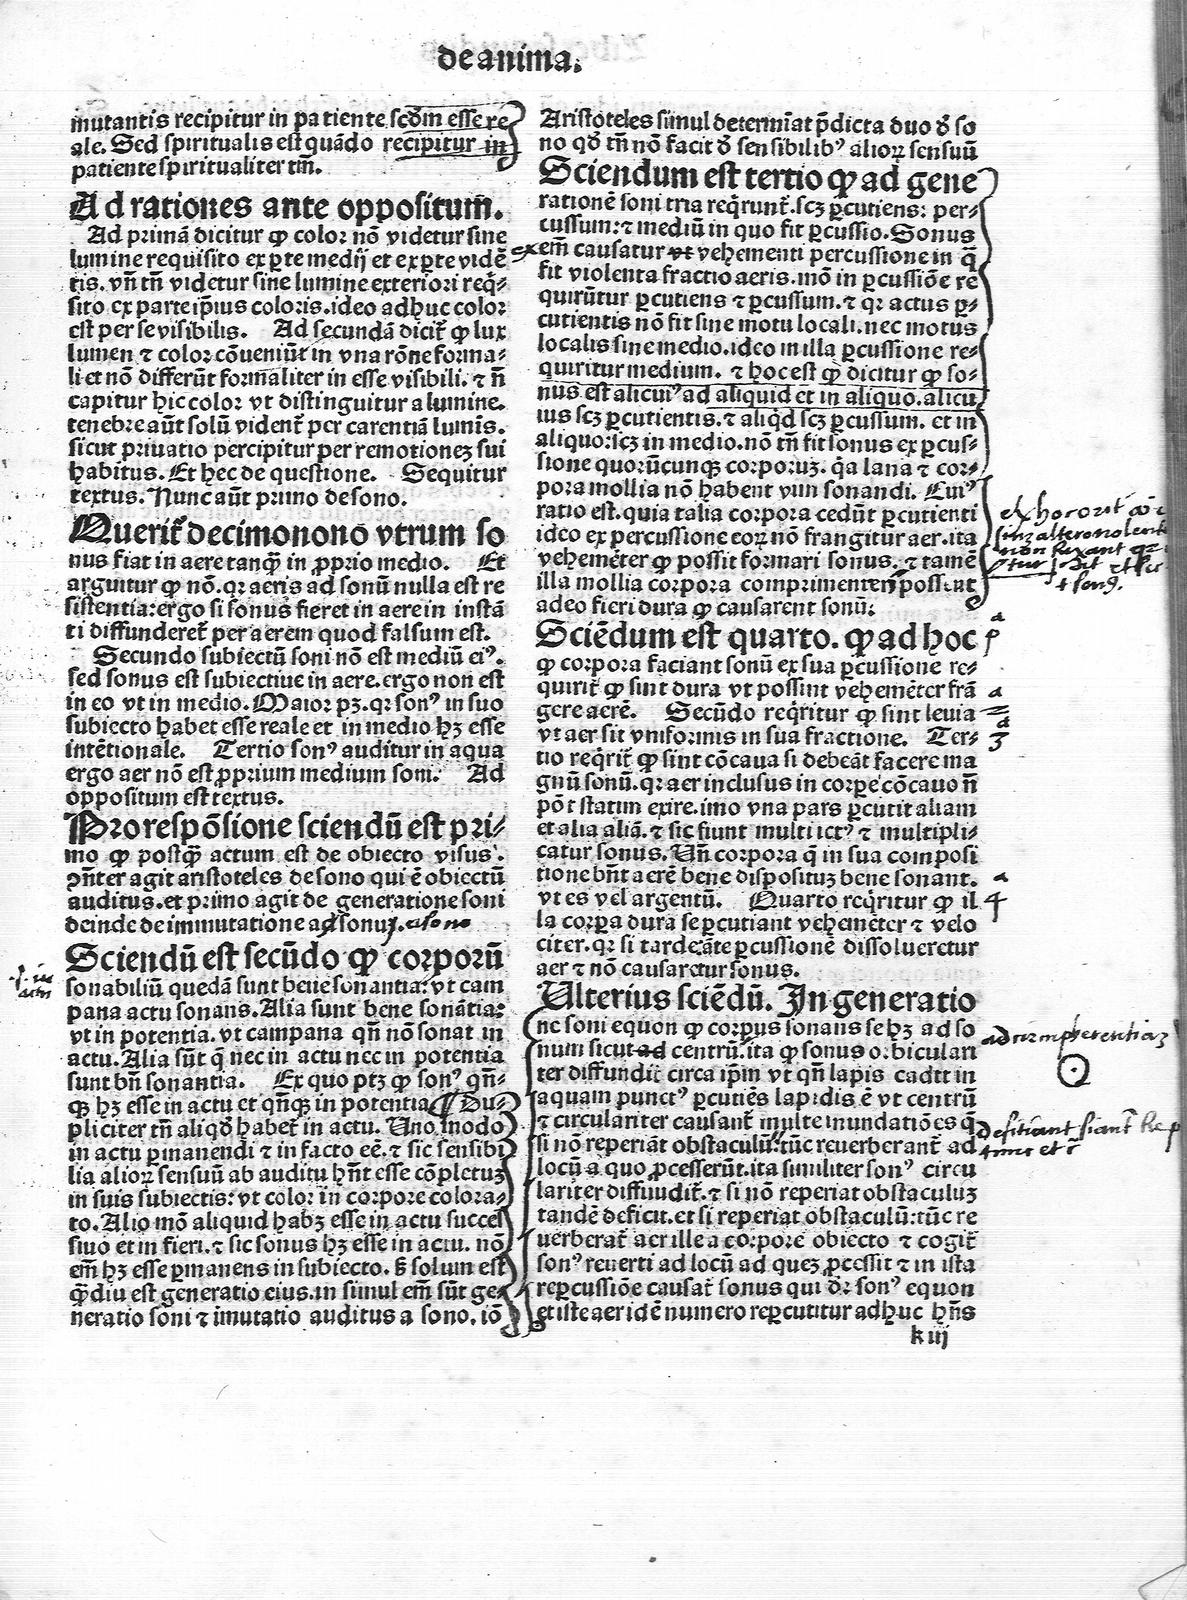 de anima.
mutantis recipitur in patiente scḋm esse re
ale. Sed spiritualis est quādo recipitur in
patiente spiritualiter tm̄.
Ad rationes ante oppositum̄.
Ad primā dicitur ꝙ color nō videtur sine
lumine requisito ex ꝑte medij et ex ꝑte vidē
tis. vn̄ tn̄ videtur sine lumine exteriori req̇-
sito ex parte ip̄ius coloris. ideo adhuc color
est per se visibilis. Ad secundā dicit̄ ꝙ lux
lumen ⁊ color cōueniūt in vna rōne forma-
li et nō differūt formaliter in esse visibili. ⁊ n̄
capitur hic color vt distinguitur a lumine.
tenebre aūt solū vident̄ per carentiā lumīs.
sicut priuatio percipitur per remotioneȝ sui
habitus. Et hec de questione. Sequitur
textus. Nunc aūt primo de sono.
Querit̄ decimonono vtrum so
nus fiat in aere tanq̄ in ꝓprio medio. Et
arguitur ꝙ nō. qr aeris ad sonū nulla est re
sistentia: ergo si sonus fieret in aere in instā
ti diffunderet̄ per aerem quod falsum est.
Secundo subiectū soni nō est mediū eiꝰ.
sed sonus est subiectiue in aere. ergo non est
in eo vt in medio. Maior pȝ. qr sonꝰ in suo
subiecto habet esse reale et in medio hȝ esse
intētionale. Tertio sonꝰ auditur in aqua
ergo aer nō est ꝓprium medium soni. Ad
oppositum est textus.
Pro respōsione sciendū est pri-
mo ꝙ postq̄ actum est de obiecto visus.
ꝯn̄ter agit aristoteles de sono qui ē obiectū
auditus. et primo agit de generatione soni
deinde de immutatione ad sonuȝ. a sono
Sciendū est secūdo ꝙ corporū
sonabiliū quedā sunt bene sonantia: vt cam
pana actu sonans. Alia sunt bene sonātia:
vt in potentia. vt campana qn̄ nō sonat in
actu. Alia sūt q̄ nec in actu nec in potentia
sunt bn̄ sonantia. Ex quo ptȝ ꝙ sonꝰ qn̄-
qȝ hȝ esse in actu et qn̄qȝ in potentia. Du-
pliciter tn̄ aliqḋ habet̄ in actu. Uno modo
in actu ꝑmanendi ⁊ in facto eē. ⁊ sic sensibi
lia alioꝝ sensuū ab auditu hn̄t esse cōpletuȝ
in suis subiectis: vt color in corpore colora-
to. Alio mō aliquid habȝ esse in actu succes
siuo et in fieri. ⁊ sic sonus hȝ esse in actu. nō
em̄ hȝ esse ꝑmanens in subiecto. ẜ solum est
q̄diu est generatio eius. in simul em̄ sūt ge
neratio soni ⁊ imutatio auditus a sono. iō
Aristoteles simul determīat p̄dicta duo ḋ so
no qḋ tn̄ nō facit ḋ sensibilibꝰ alioꝝ sensuū
Sciendum est tertio ꝙ ad gene
rationē soni tria req̇runt̄. scȝ ꝑcutiens: per-
cussum: ⁊ mediū in quo fit ꝑcussio. Sonus
em̄ causatur vt vehementi percussione in q̄
fit violenta fractio aeris. mō in ꝑcussiōe re
quirūtur ꝑcutiens ⁊ ꝑcussum. ⁊ qr actus ꝑ-
cutientis nō fit sine motu locali. nec motus
localis sine medio. ideo in illa ꝑcussione re-
quiritur medium. ⁊ hoc est ꝙ dicitur ꝙ so-
nus est alicuiꝰ ad aliquid et in aliquo. alicu
ius scȝ ꝑcutientis. ⁊ aliq̇d scȝ ꝑcussum. et in
aliquo: scȝ in medio. nō tn̄ fit sonus ex ꝑcus-
sione quorūcunqȝ corporuȝ. q̇a lana ⁊ cor-
pora mollia nō habent vim sonandi. Cuiꝰ
ratio est. quia talia corpora cedūt ꝑcutienti
ideo ex percussione eoꝝ nō frangitur aer. ita
vehemēter ꝙ possit formari sonus. ⁊ tamē
illa mollia corpora comprimentem possent
adeo fieri dura ꝙ causarent sonū.
Sciēdum est quarto. ꝙ ad hoc
ꝙ corpora faciant sonū ex sua ꝑcussione re-
quirit̄ ꝙ sint dura vt possint vehemēter frā
gere aerē. Secūdo req̇ritur ꝙ sint leuia
vt aer sit vniformis in sua fractione. Ter-
tio req̇rit̄ ꝙ sint cōcaua si debeāt facere ma
gnū sonū. qr aer inclusus in corꝑe cōcauo n̄
pōt statim exire. imo vna pars ꝑcutit aliam
et alia aliā. ⁊ sic fiunt multi ictꝰ ⁊ multipli-
catur sonus. Un̄ corpora q̄ in sua composi
tione bn̄t aerē bene dispositūȝ bene sonant.
vt es vel argentū. Quarto req̇ritur ꝙ il
la corꝑa dura se ꝑcutiant vehemēter ⁊ velo
citer. qr si tarde: āte ꝑcussionē dissolueretur
aer ⁊ nō causaretur sonus.
Ulterius sciēdū. In generatio
ne soni equon ꝙ corpus sonans se hȝ ad so
num sicut ad centrū. ita ꝙ sonus orbiculari
ter diffundit̄ circa ip̄m vt qn̄ lapis cadit in
aquam punctꝰ ꝑcutiēs lapidis ē vt centrū
⁊ circulariter causant̄ multe inundatiōes q̄
si nō reperiāt obstaculū. tūc reuerberant̄ ad
locū a quo ꝓcesserūt. ita similiter sonꝰ circu
lariter diffundit̄. ⁊ si nō reperiat obstaculuȝ
tandē deficit. et si reperiat obstaculū: tūc re
uerberat̄ aer ille a corpore obiecto ⁊ cogit̄
sonꝰ reuerti ad locū ad queȝ ꝓcessit ⁊ in ista
reꝑcussiōe causat̄ sonus qui dr̄ sonꝰ equon
et iste aer idē numero reꝑcutitur adhuc hn̄s
k iij
ad circumpherentiaȝ